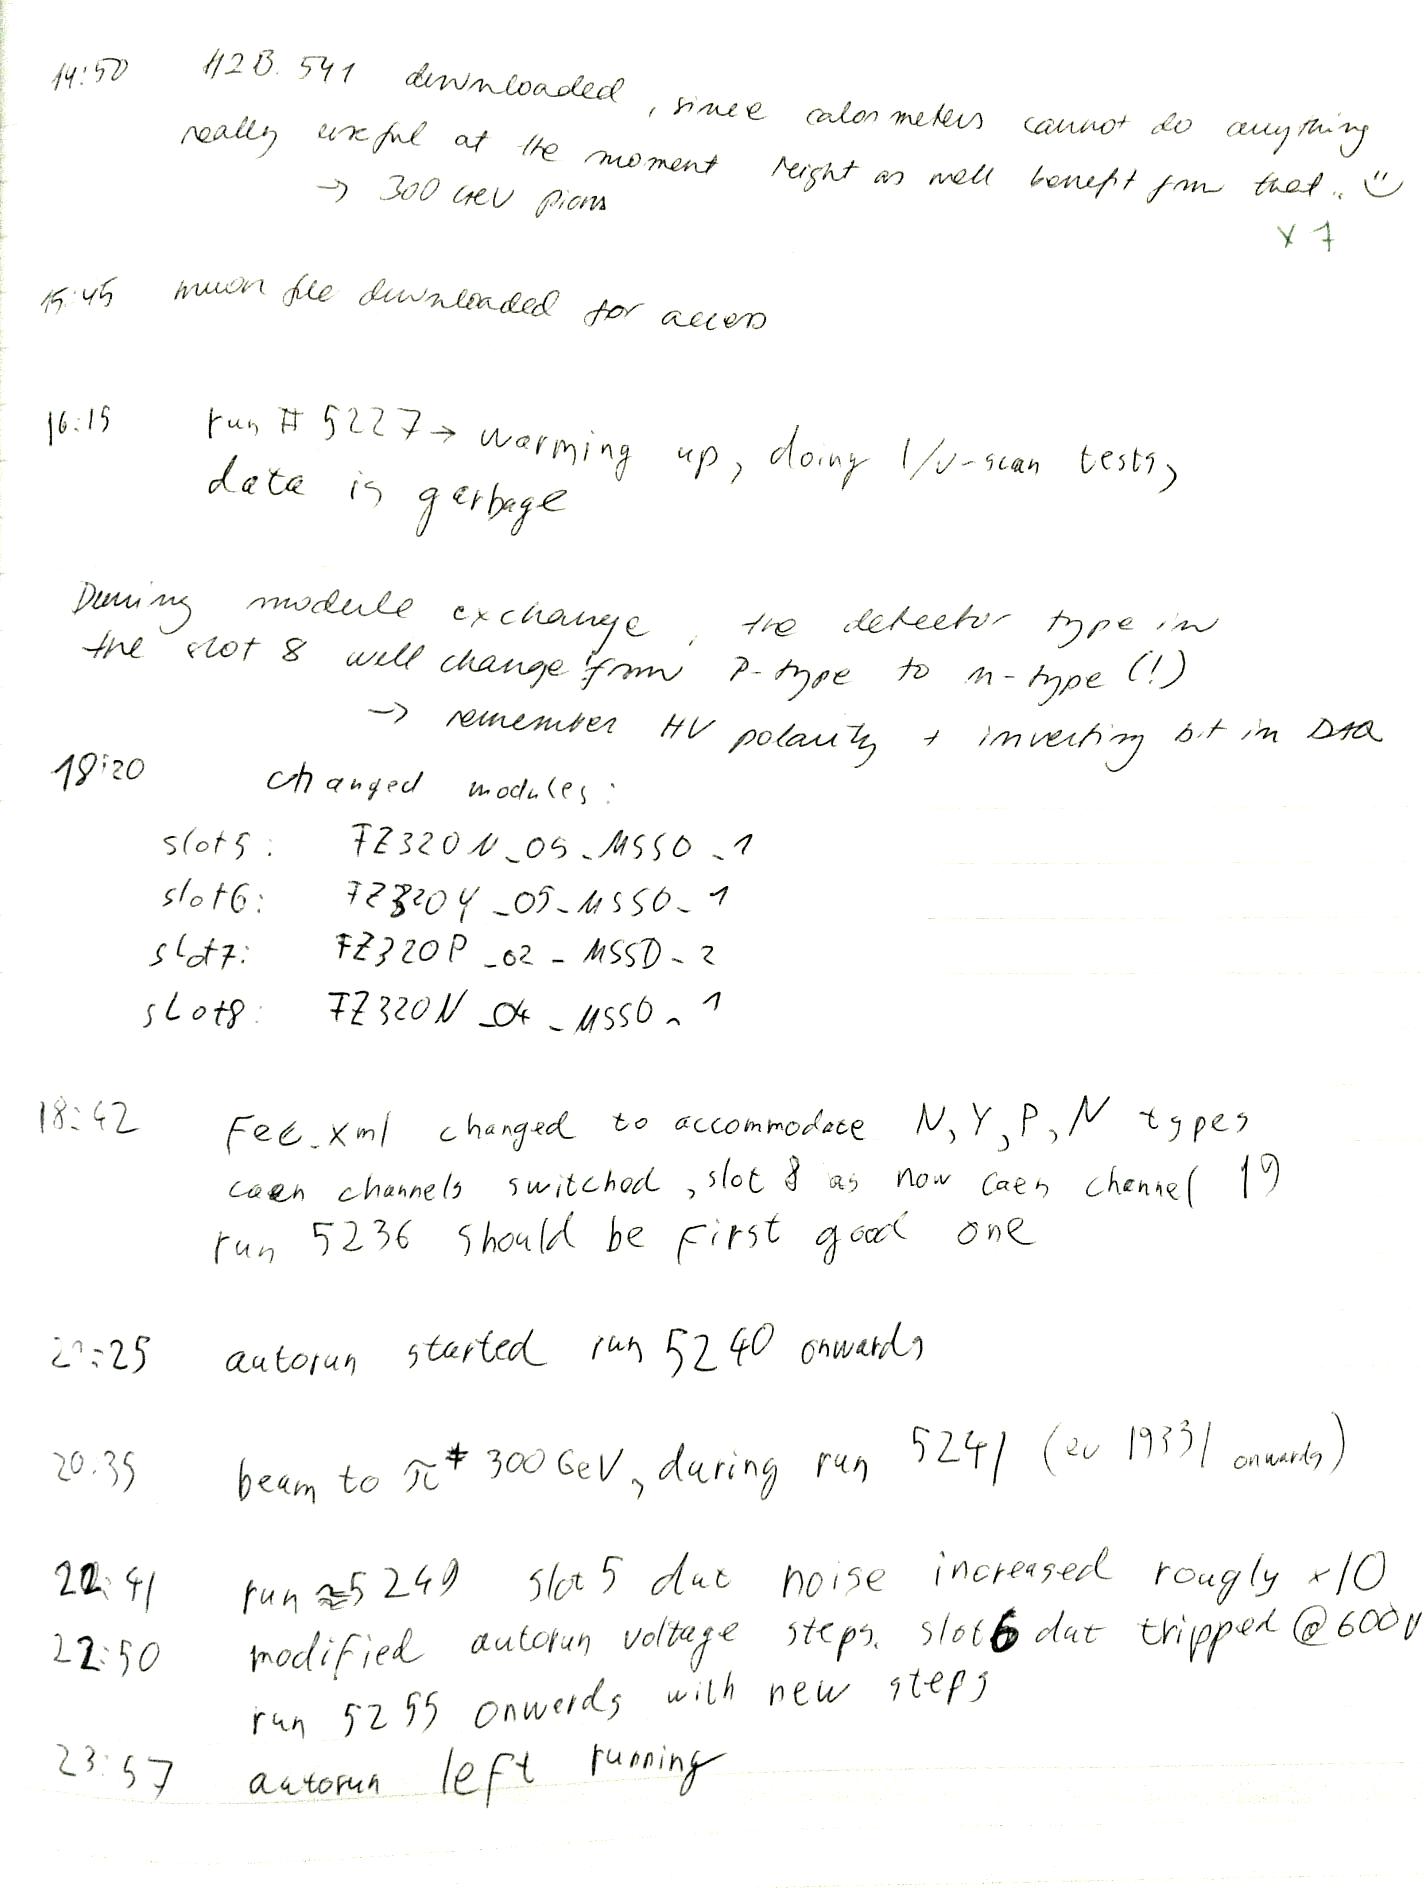 14:50 H2B.541 downloaded, since calorimeters cannot do anything
really useful at the moment might as well benefit from that.. :)
→ 300 GeV pions
x 7
15:45 muon file downloaded for access
16:15 run # 5227 → warming up, doing I/V-scan tests,
data is garbage
During module exchange, the detector type in
the slot 8 will change from P-type to n-type (!)
→ remember HV polarity + inverting bit in DAQ
18:20 changed modules:
slot5: FZ320N_05_MSSD_1
slot6: FZ320Y_05_MSSD_1
slot7: FZ320P_02_MSSD_2
slot8: FZ320N_04_MSSD_1
18:42 Fec.xml changed to accommodate N, Y, P, N types
caen channels switched, slot 8 as now caen channel 19
run 5236 should be first good one
:25 autorun started run 5240 onwards
20:35 beam to π+ 300 GeV, during run 5241 (ev 19331 onwards)
22:41 run ≈5249 slot 5 dut noise increased rougly x10
22:50 modified autorun voltage steps. slot6 dut tripped @ 600V
run 5255 onwards with new steps
23:57 autorun left running